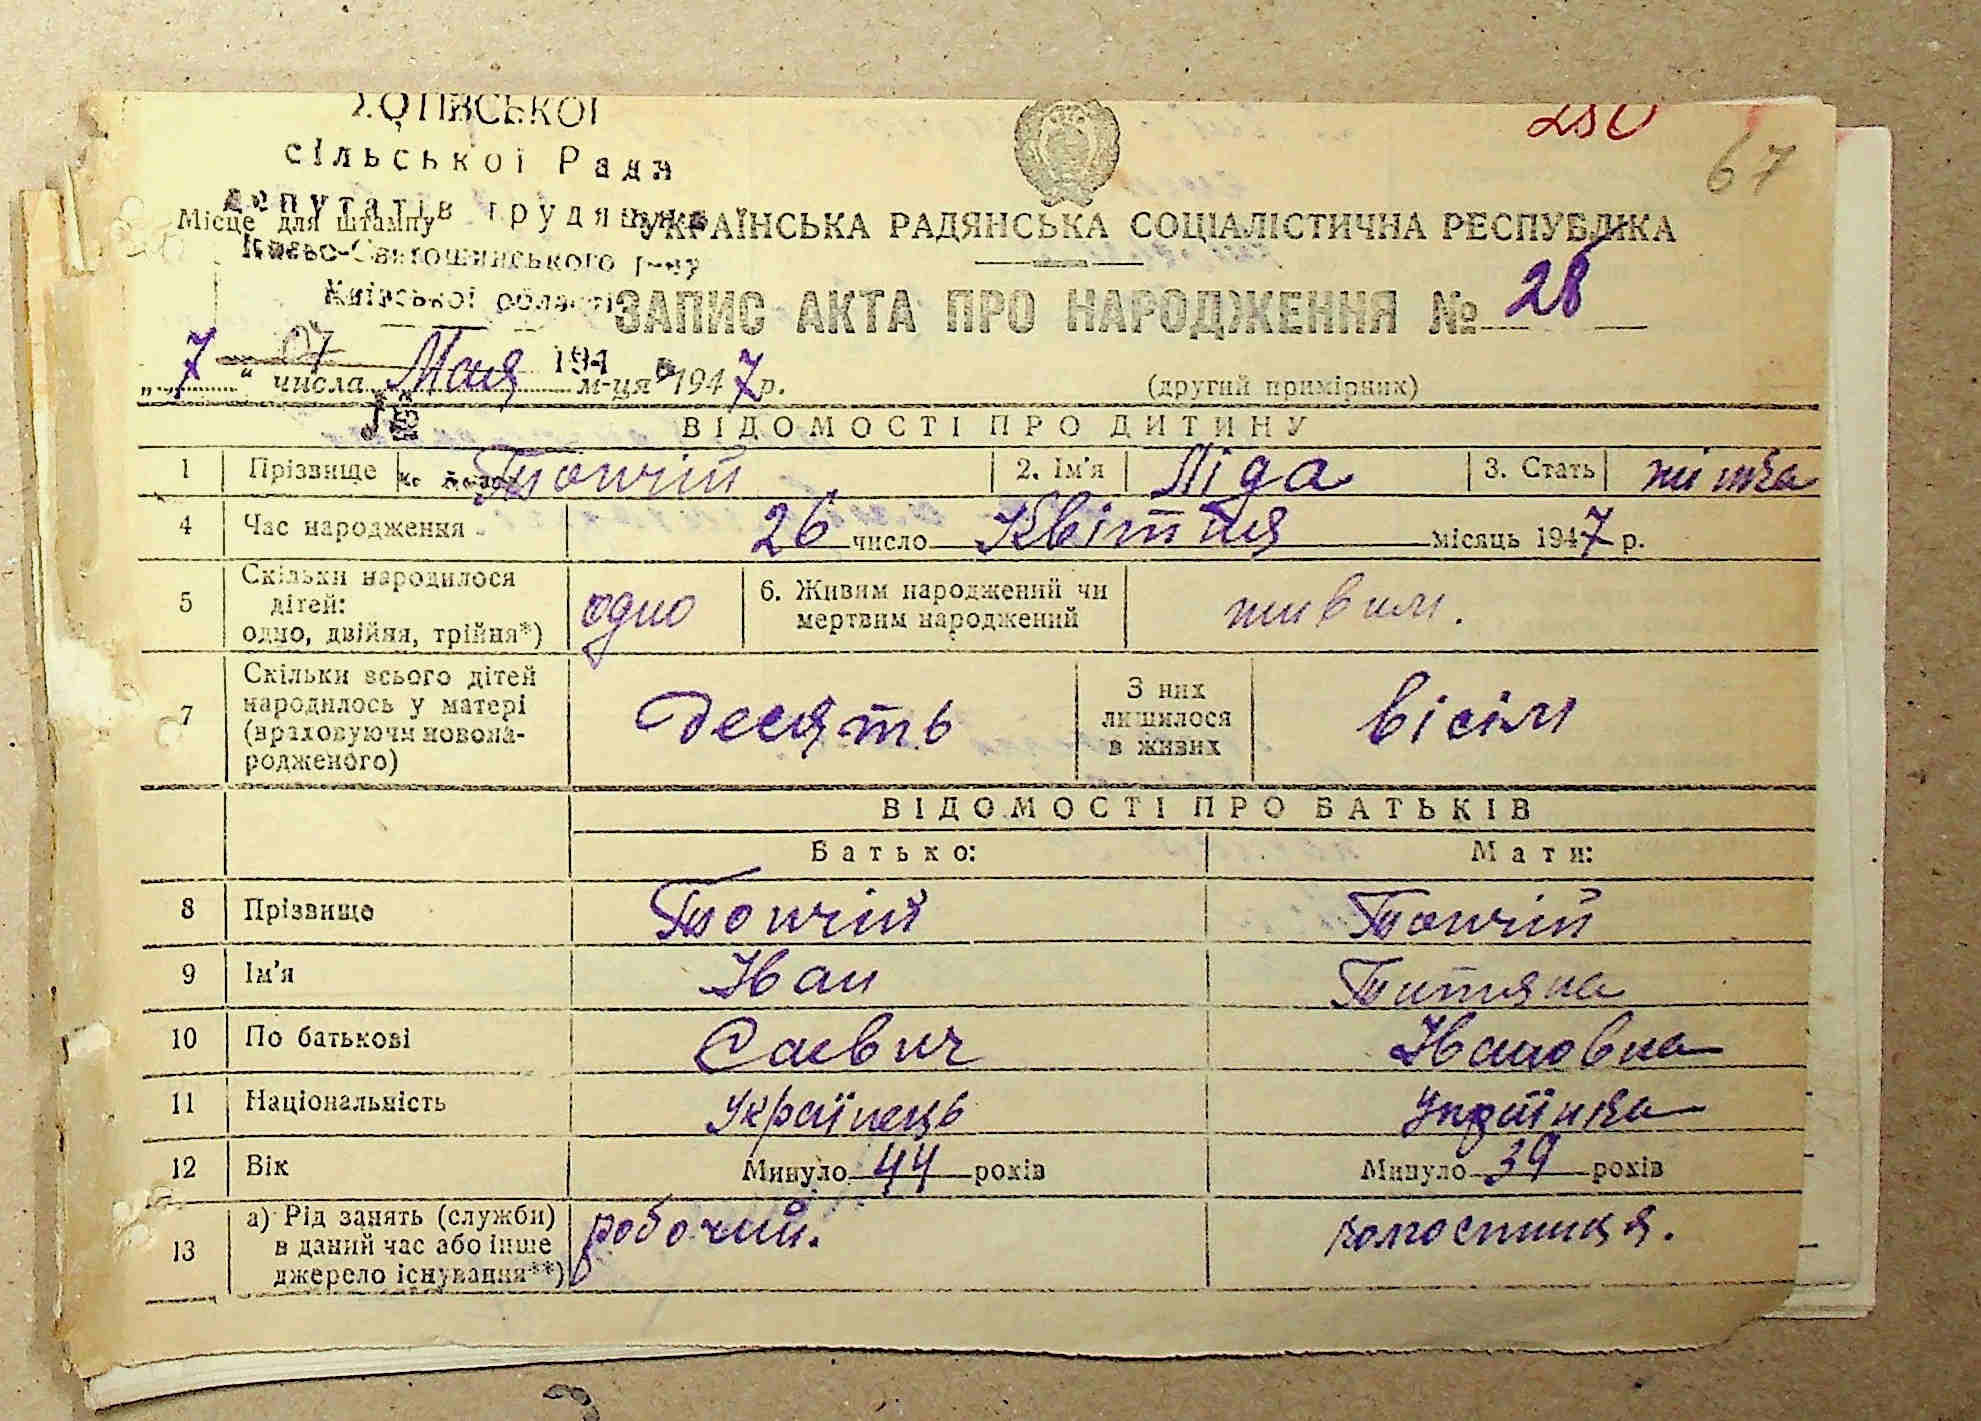 сільської Ради
депутатів трудящих
Місце для штампу
УКРАЇНСЬКА РАДЯНСЬКА СОЦІАЛІСТИЧНА РЕСПУБЛІКА
Києво-Святошинського р-ну
Київської області
67
ЗАПИС АКТА ПРО НАРОДЖЕННЯ № 28
„7“ числа Мая м-ця 1947 р.
(другий примірник)
ВІДОМОСТІ ПРО ДИТИНУ
1 Прізвище Топчій 2. Ім'я Ліда 3. Стать жінка
4 Час народження 26 число Квітня місяць 1947 р.
5 Скільки народилося дітей: одно, двійня, трійня*) одно 6. Живим народжений чи мертвим народжений живим.
7 Скільки всього дітей народилось у матері (враховуючи новонародженого) десять З них лишилося в живих вісім
ВІДОМОСТІ ПРО БАТЬКІВ
Батько: Мати:
8 Прізвище Топчій Топчій
9 Ім'я Іван Титяна
10 По батькові Саєвич Івановна
11 Національність Українець Українка
12 Вік Минуло 44 років Минуло 39 років
13 а) Рід занять (служби) в даний час або інше джерело існування**) робочий. колгоспниця.